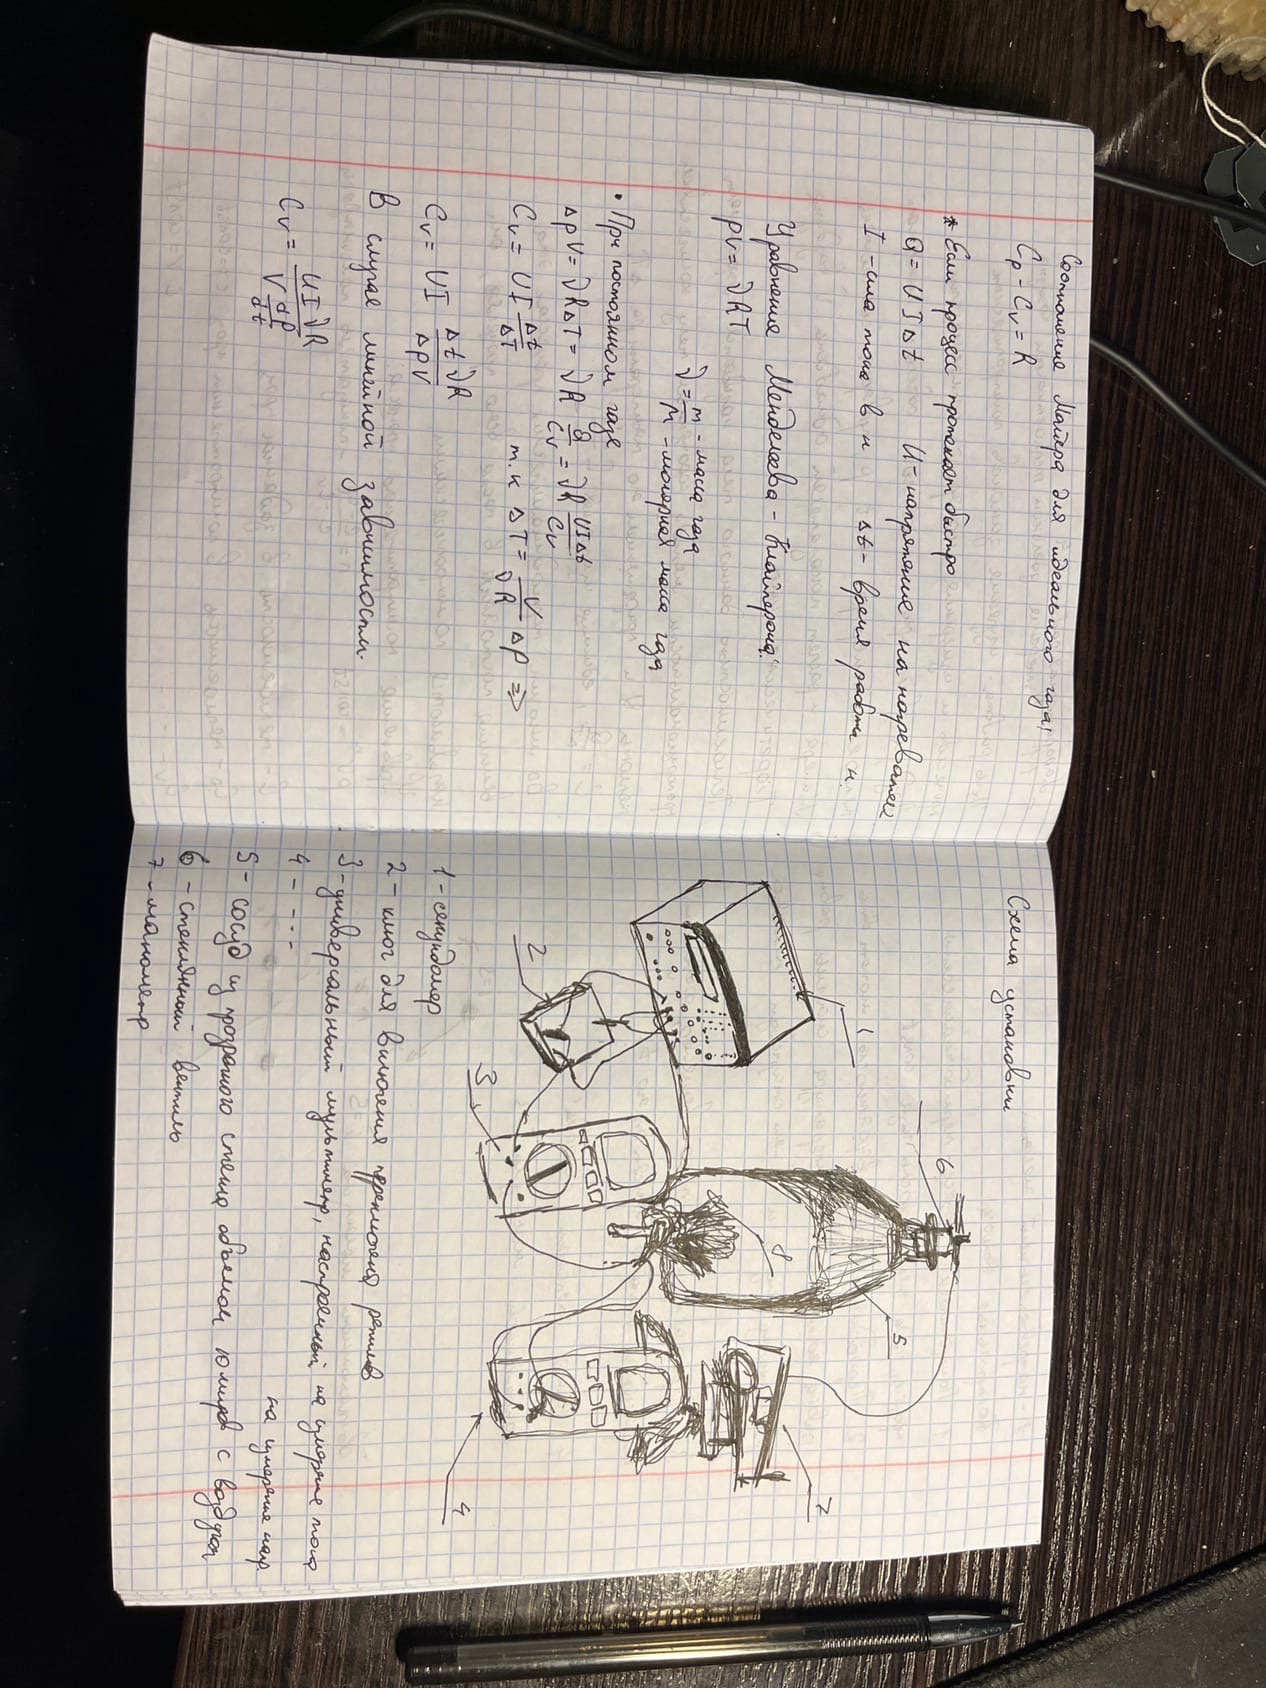 Соотношение Майера для идеального газа:
Cp - Cv = R
* Если процесс протекает быстро
Q = UIΔt    U - напряжение на нагревателе
I - сила тока в н    Δt - время работы н.
Уравнение Менделеева - Клайперона:
pV = νRT    ν = m/M    m - масса газа
M - молярная масса газа
• При постоянном газе
ΔpV = νRΔT = νR Q/Cv = νR UIΔt/Cv
Cv = UI Δt/ΔT    т.к ΔT = V/νR Δp ⇒
Cv = UI ΔtνR/ΔpV
В случае линейной зависимости.
Cv = UIνR/(V dp/dt)
Схема установки
1
2
3
4
5
6
7
8
1 - секундомер
2 - ключ для включения режимов
3 - универсальный мультиметр, настроенный на измерение тока
4 - - - - на измерение напр.
5 - сосуд из прозрачного стекла объемом 10 литров с воздухом
6 - стеклянный вентиль
7 - манометр